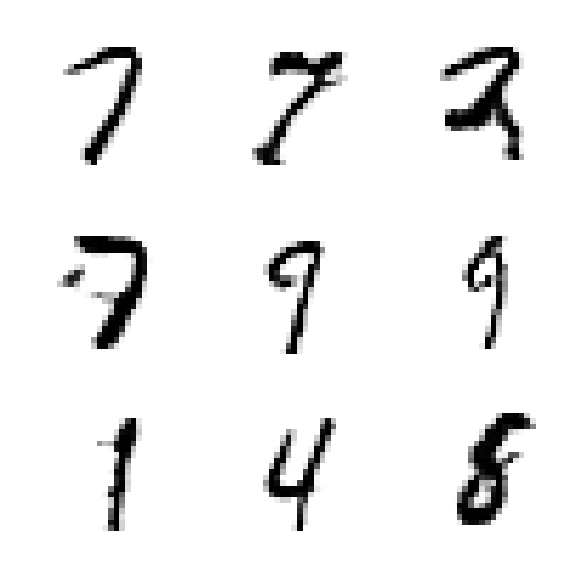 7 7 2
7 9 9
1 4 8